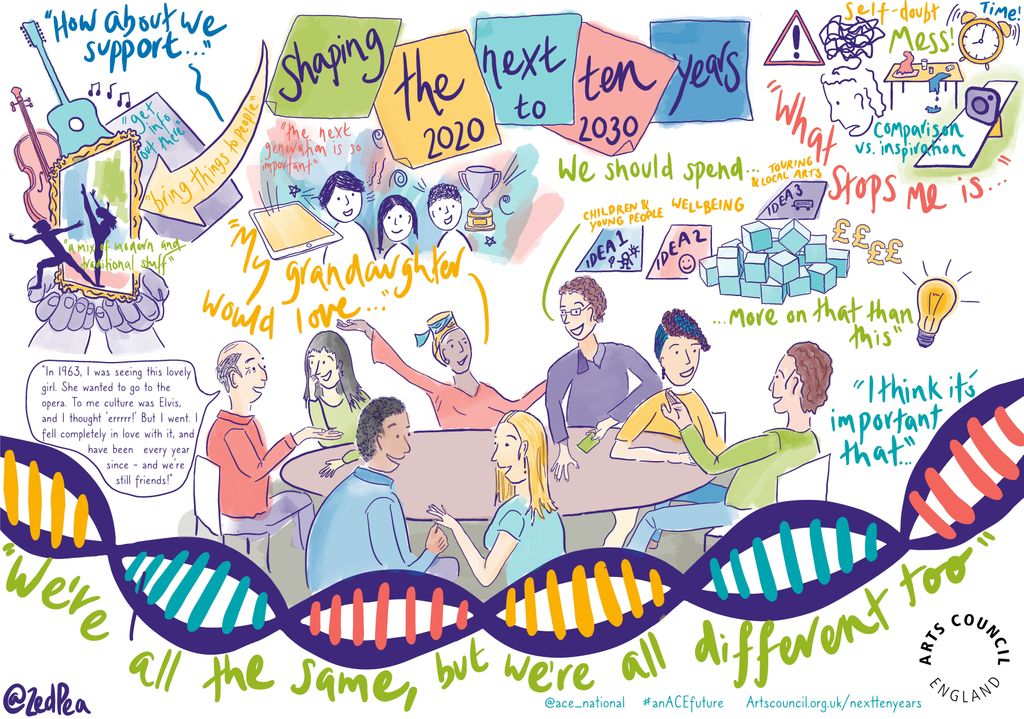 "How about we
support..."
shaping
the
2020
next
to
ten
2030
years
self-doubt
Time!
Mess!
"get
into
out there"
"bring things to people"
"the next
generation is so
important"
"What
stops me is..."
comparison
vs. inspiration
We should spend...
TOURING
& LOCAL ARTS
CHILDREN &
YOUNG PEOPLE
WELLBEING
IDEA 1
IDEA 2
IDEA 3
££££
...more on that than
this"
"a mix of modern and
traditional stuff"
"My grandaughter
would love..."
"In 1963, I was seeing this lovely
girl. She wanted to go to the
opera. To me culture was Elvis,
and I thought 'errrrr!' But I went. I
fell completely in love with it, and
have been every year
since - and we're
still friends!"
"I think it's
important
that..."
"We're all the same, but we're all different too"
ARTS COUNCIL
ENGLAND
@ZedPea
@ace_national #anACEfuture Artscouncil.org.uk/nexttenyears